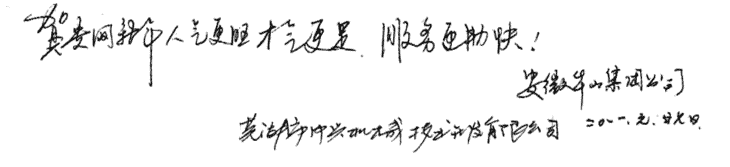 贺贵网新年人气更旺才气更足,服务更勤快!
安徽牛山集团公司
芜湖市中兴机械技术开发有限公司 二〇〇一.元.廿七日